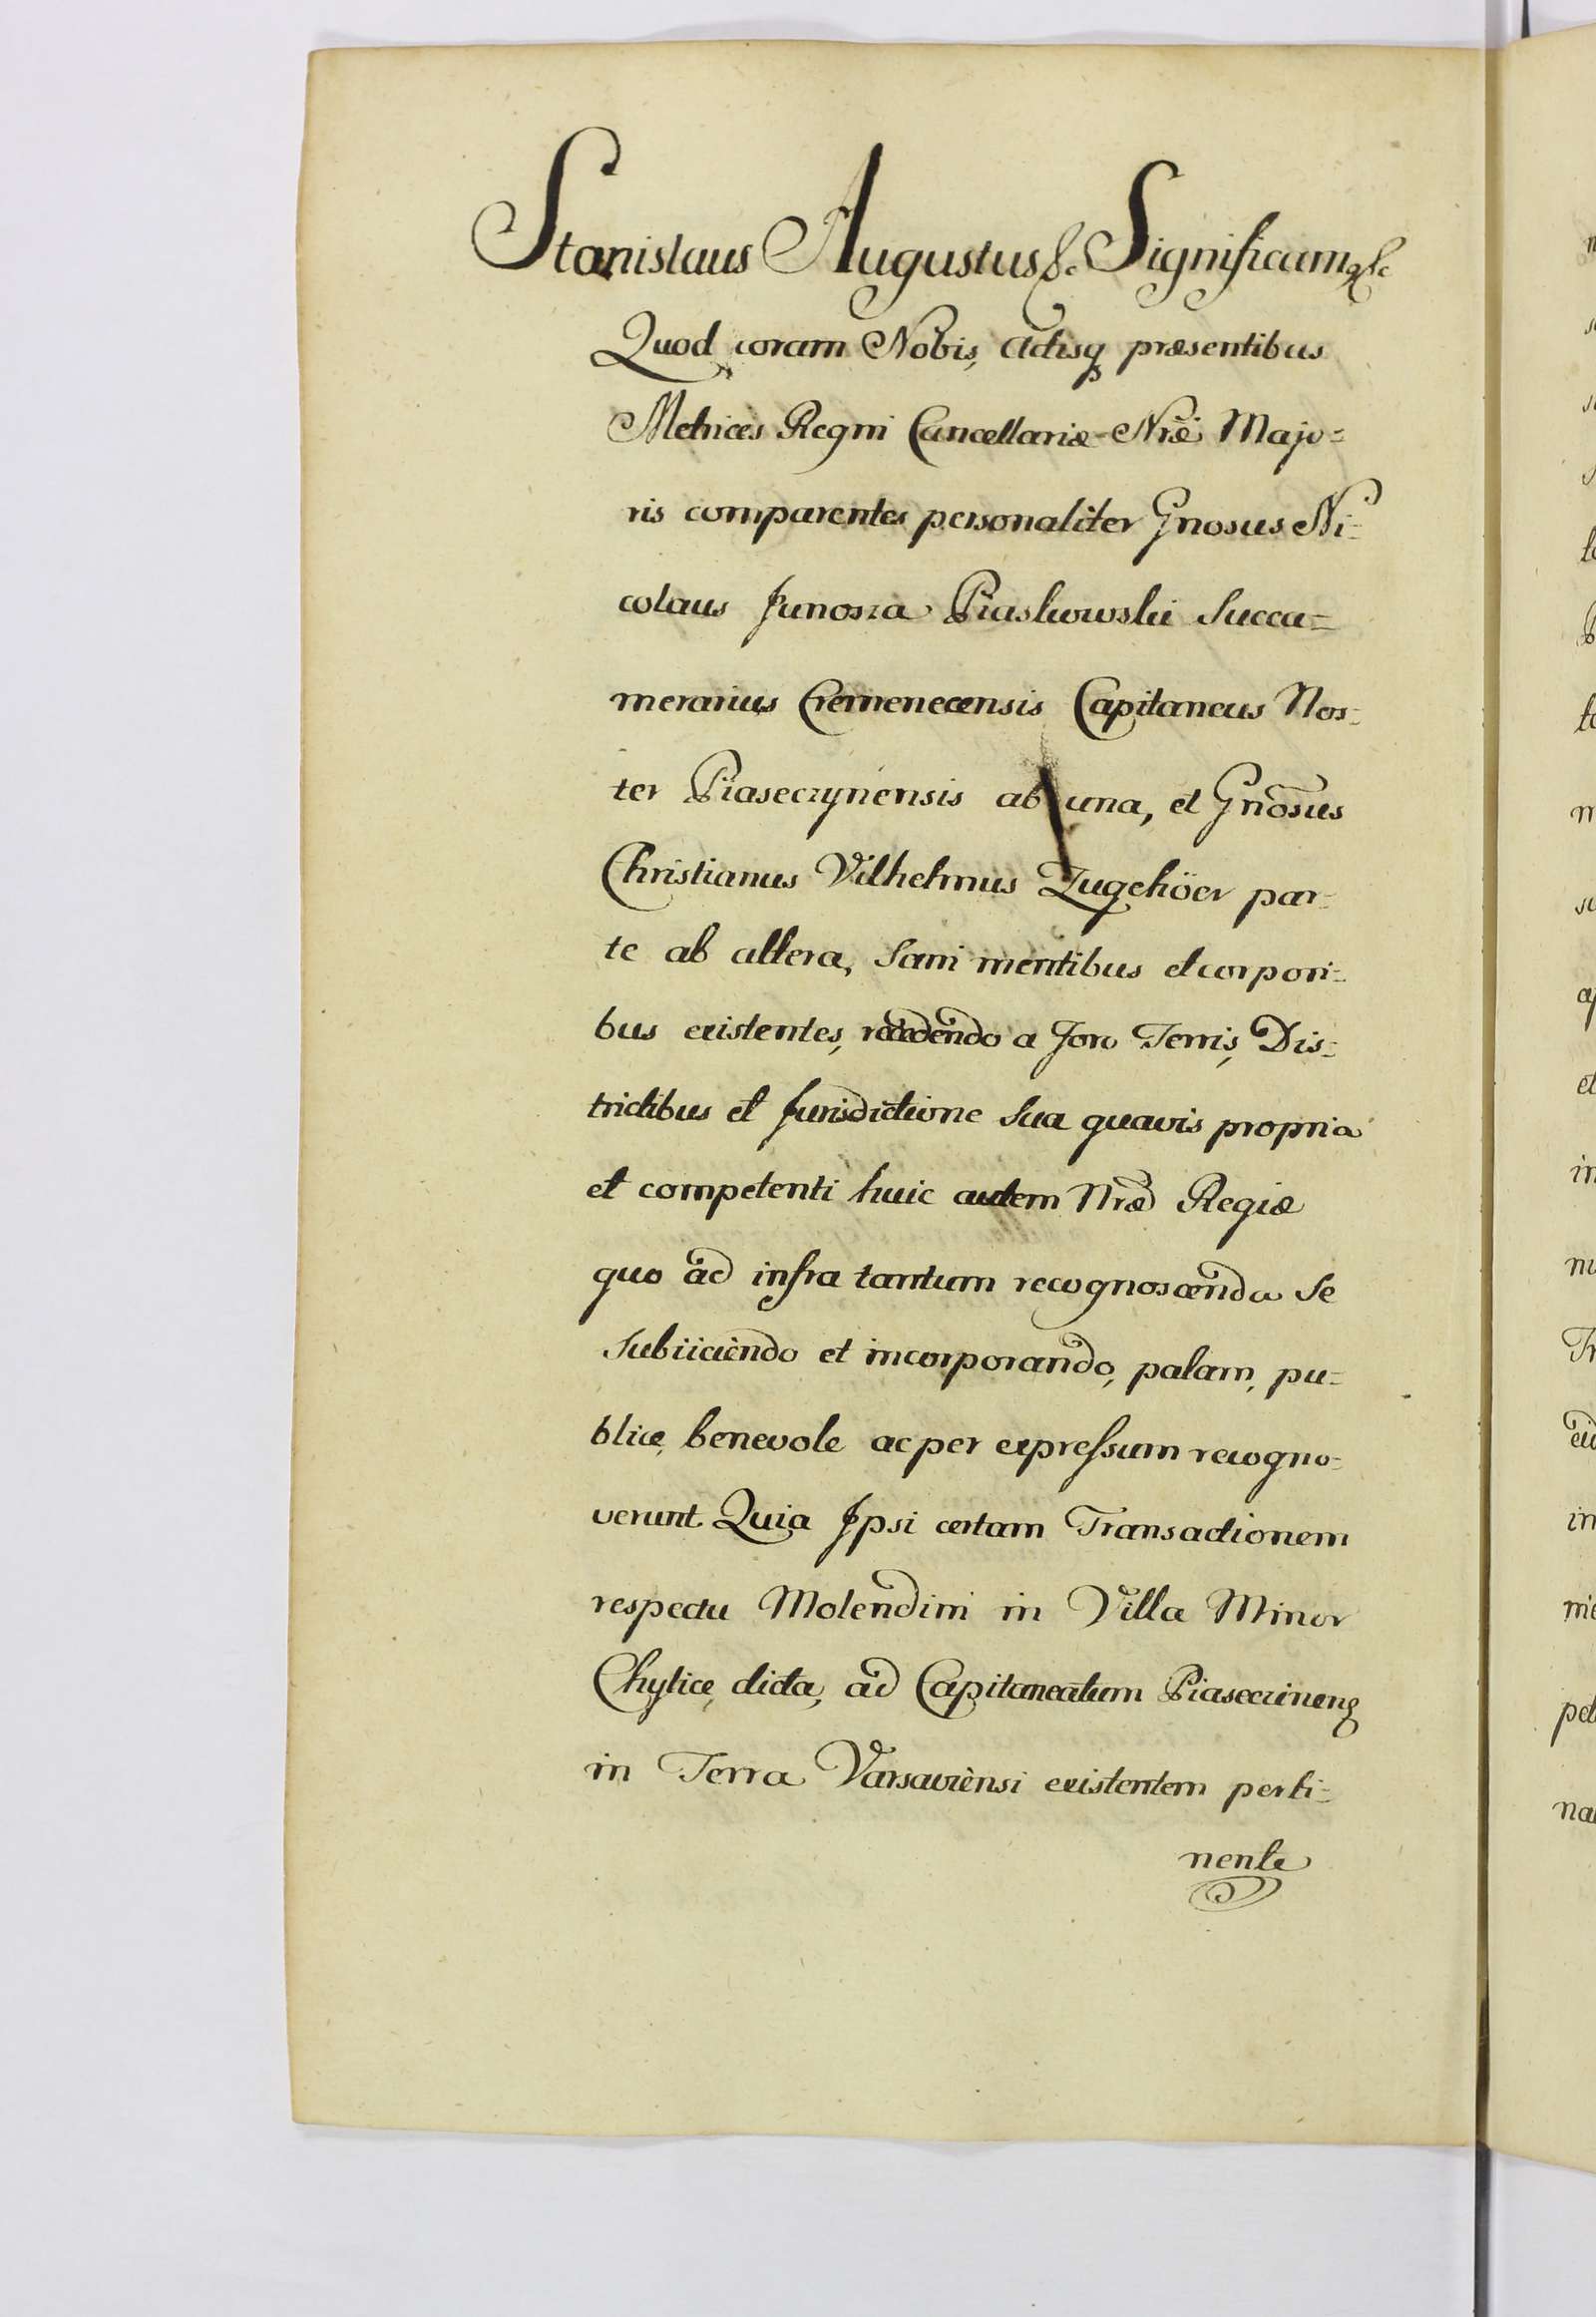 Stanislaus Augustus &c Significamꝰ &c
Quod coram Nobis, Actisq præsentibus
Metrices Regni Cancellariæ Nræ Majo=
ris comparentes personaliter Gnosus Ni=
colaus Junosza Piaskowski Succa=
merarius Cremenecensis Capitaneus Nos=
ter Piaseczynensis ab una, et Gnosus
Christianus Vilhelmus Zugehöer par=
te ab altera, Sani mentibus et corpori=
bus existentes, recedendo a Foro Terris, Dis=
trictibus et Jurisdictione Sua quavis propria
et competenti huic autem Nræ Regiæ
quo ad infra tantum recognoscenda Se
Subiiciendo et incorporando, palam, pu=
blice, benevole ac per expressum recogno=
verunt Quia Ipsi certam Transactionem
respectu Molendini in Villa Minor
Chylice, dicta, ad Capitaneatum Piaseczinensꝫ
in Terra Varsaviensi existentem perti=
nente